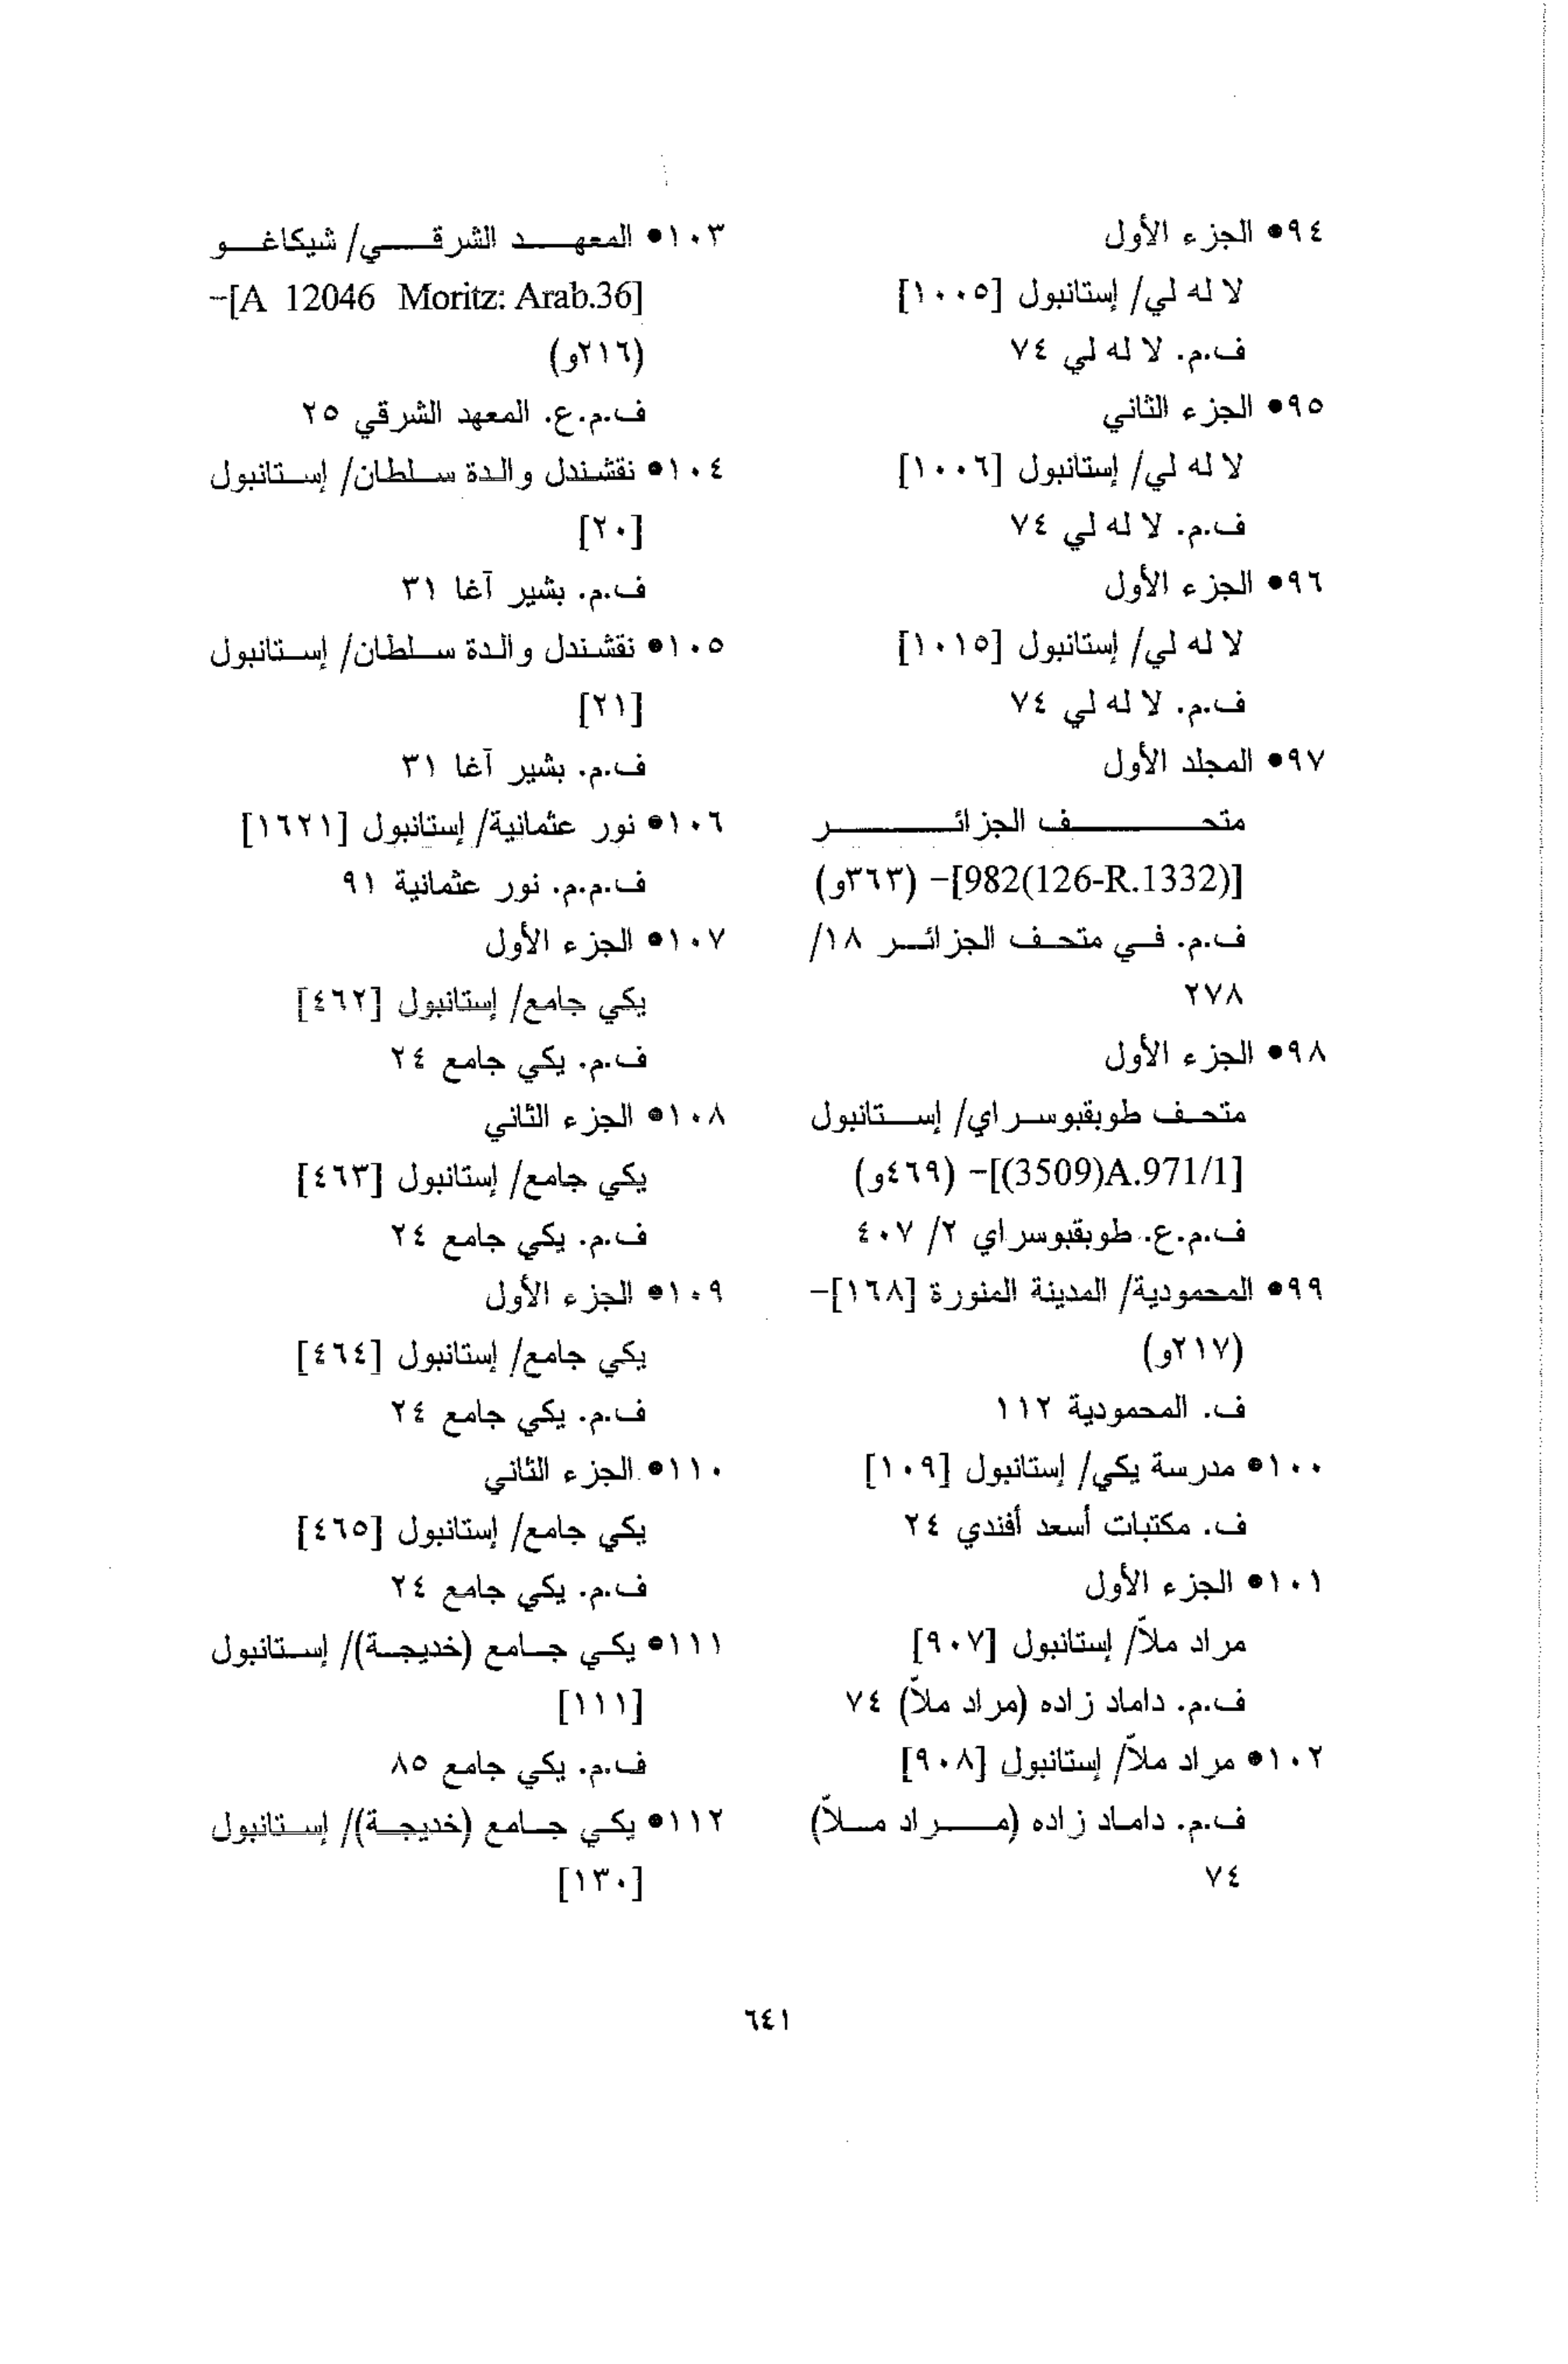 ٩٤• الجزء الأول
لا له لي/ إستانبول [١٠٠٥]
ف.م. لا له لي ٧٤
٩٥• الجزء الثاني
لا له لي/ إستانبول [١٠٠٦]
ف.م. لا له لي ٧٤
٩٦• الجزء الأول
لا له لي/ إستانبول [١٠١٥]
ف.م. لا له لي ٧٤
٩٧• المجلد الأول
متحف الجزائر
[982(126-R.1332)]- (٣٦٣و)
ف.م. في متحف الجزائر ١٨/
٢٧٨
٩٨• الجزء الأول
متحف طوبقبوسراي/ إستانبول
[(3509)A.971/1]- (٤٦٩و)
ف.م.ع. طوبقبوسراي ٢/ ٤٠٧
٩٩• المحمودية/ المدينة المنورة [١٦٨]-
(٢١٧و)
ف. المحمودية ١١٢
١٠٠• مدرسة يكي/ إستانبول [١٠٩]
ف. مكتبات أسعد أفندي ٢٤
١٠١• الجزء الأول
مراد ملاّ/ إستانبول [٩٠٧]
ف.م. داماد زاده (مراد ملاّ) ٧٤
١٠٢• مراد ملاّ/ إستانبول [٩٠٨]
ف.م. داماد زاده (مراد ملاّ)
٧٤
١٠٣• المعهد الشرقي/ شيكاغو
[A 12046 Moritz: Arab.36]-
(٢١٦و)
ف.م.ع. المعهد الشرقي ٢٥
١٠٤• نقشندل والدة سلطان/ إستانبول
[٢٠]
ف.م. بشير آغا ٣١
١٠٥• نقشندل والدة سلطان/ إستانبول
[٢١]
ف.م. بشير آغا ٣١
١٠٦• نور عثمانية/ إستانبول [١٦٢١]
ف.م.م. نور عثمانية ٩١
١٠٧• الجزء الأول
يكي جامع/ إستانبول [٤٦٢]
ف.م. يكي جامع ٢٤
١٠٨• الجزء الثاني
يكي جامع/ إستانبول [٤٦٣]
ف.م. يكي جامع ٢٤
١٠٩• الجزء الأول
يكي جامع/ إستانبول [٤٦٤]
ف.م. يكي جامع ٢٤
١١٠• الجزء الثاني
يكي جامع/ إستانبول [٤٦٥]
ف.م. يكي جامع ٢٤
١١١• يكي جامع (خديجة)/ إستانبول
[١١١]
ف.م. يكي جامع ٨٥
١١٢• يكي جامع (خديجة)/ إستانبول
[١٣٠]
٦٤١